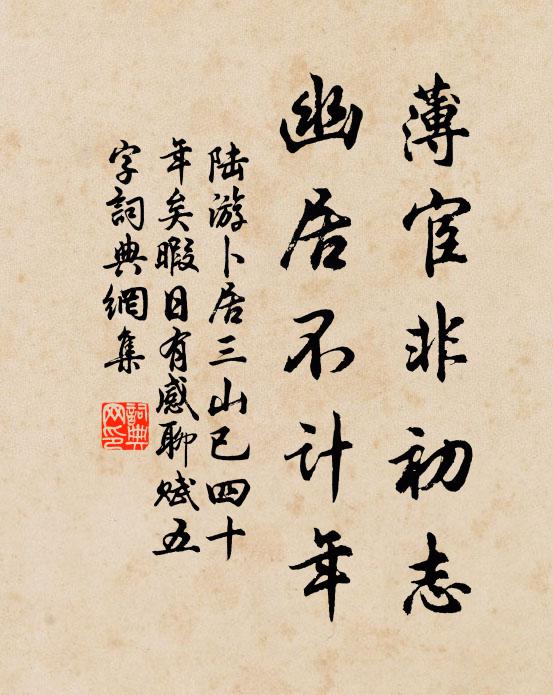 薄宦非初志
幽居不计年
陆游卜居三山已四十
年矣暇日有感聊赋五
字詞典網集
詞典网印